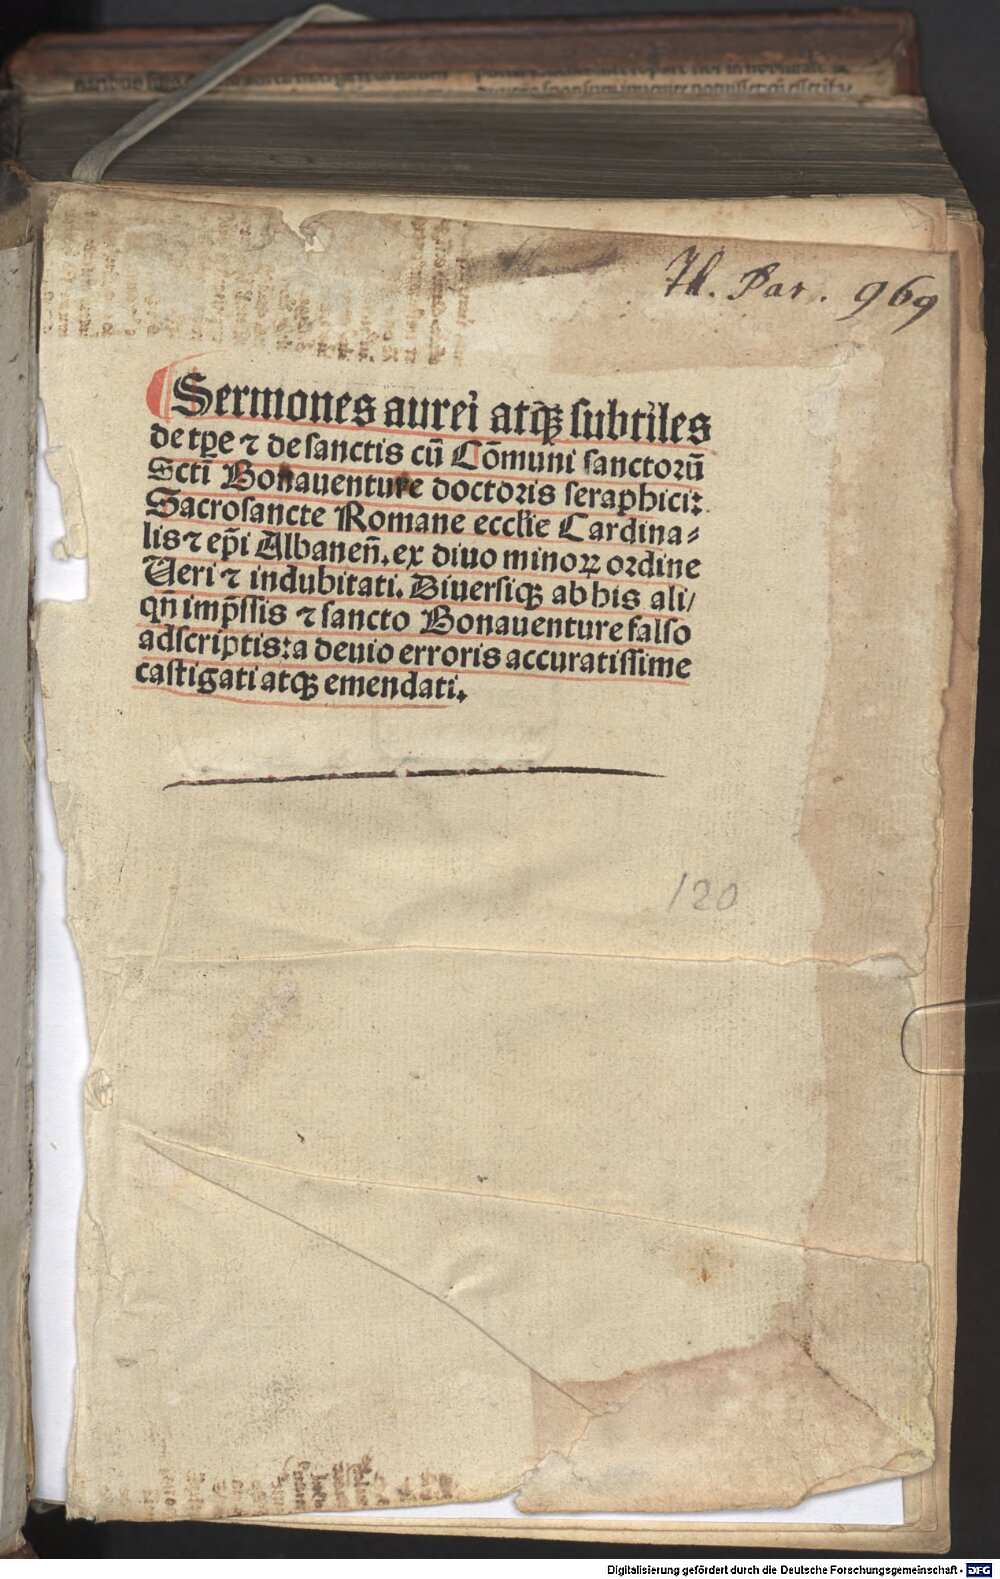 Th. Par. 969
Sermones aurei atqꝫ subtiles
de tꝑe ⁊ de sanctis cū Cōmuni sanctorū
Scti Bonauenture doctoris seraphici:
Sacrosancte Romane ecclie Cardina⸗
lis ⁊ ep̄i Albaneñ. ex diuo minoꝝ ordine
Veri ⁊ indubitati. Diuersiqꝫ ab his ali/
qñ imp̄ssis ⁊ sancto Bonauenture falso
adscriptis: a deuio erroris accuratissime
castigati atqꝫ emendati.
120
Digitalisierung gefördert durch die Deutsche Forschungsgemeinschaft - DFG